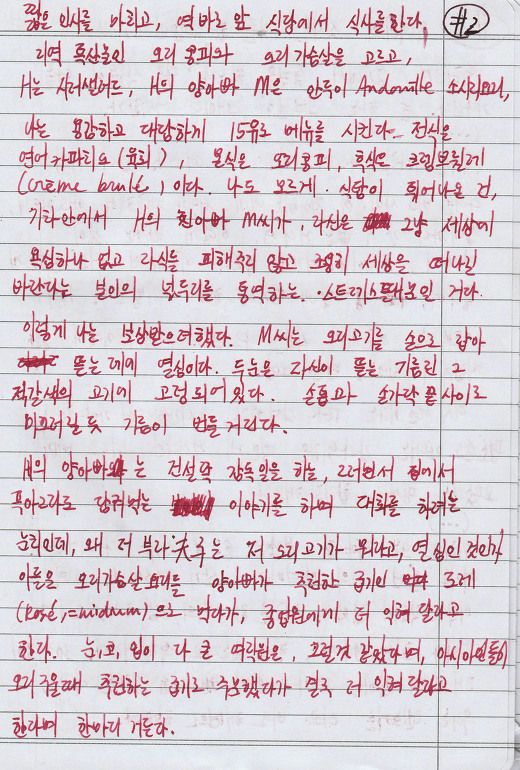 #2
짧은 인사를 마치고, 여 바로 앞 식당에서 식사를 한다.
지역 특산물인 오리 콩피와 오리가슴살을 고르고,
H는 시저샐러드, H의 양아빠 M은 안두이 Andouille 소시지요리,
나는 용감하고 대담하게 15유로 메뉴를 시킨다. 전식은
연어카파치오(육회), 본식은 오리콩피, 후식은 크렘브륄레
(creme brulé)이다. 나도 모르게 식당이 튀어나온 건,
기차안에서 H의 친아빠 M씨가, 자신은 그냥 세상에
욕심하나 없고 자식들 피해주지 않고 조용히 세상을 떠나길
바란다는 말의 넋두리를 통역하는 스트레스때문인 거다.
이렇게 나는 보상받으려했다. M씨는 오리고기를 손으로 잡아
뜯는데에 열심이다. 두눈은 자신이 뜯는 기름진 그
적갈색의 고기에 고정되어 있다. 손톱과 손가락 끝사이로
미끄러질 듯 기름이 번들거린다.
H의 양아빠는 건설 감독일을 하는, 그러면서 집에서
푸아그라도 담궈먹는 이야기를 하며 대화를 하려는
눈치인데, 왜 저 부라夫주는 저 오리고기가 뭐라고, 열심인 것인지
이들은 오리가슴살 요리를 양아빠가 추천한 굽기인 로제
(Rosé, =midum)으로 먹다가, 종업원에게 더 익혀 달라고
한다. 눈, 코, 입이 다 큰 여직원은, 그럴것 같았다며, 아시아인들이
오리 주문때 추천하는 굽기로 주문했다가 결국 더 익혀 달라고
한다며 한마디 거든다.